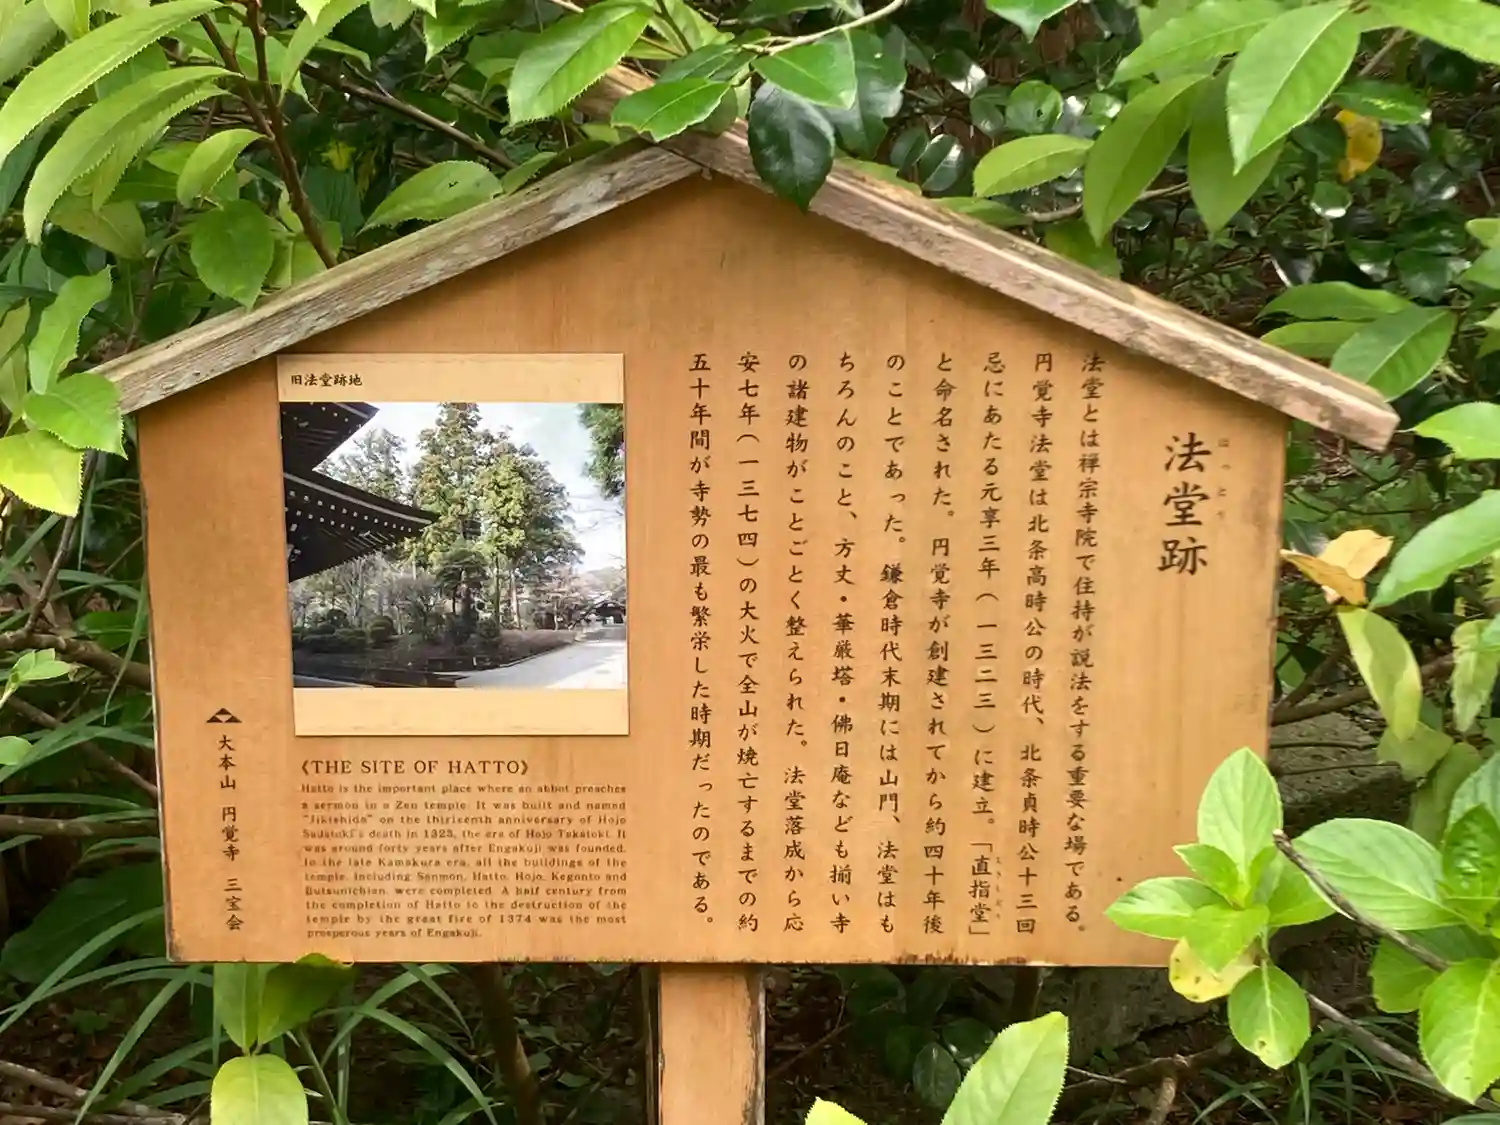 法堂跡
はっとう
法堂とは禅宗寺院で住持が説法をする重要な場である。
円覚寺法堂は北条高時公の時代、北条貞時公十三回
忌にあたる元享三年(一三二三)に建立。「直指堂」
と命名された。円覚寺が創建されてから約四十年後
のことであった。鎌倉時代末期には山門、法堂はも
ちろんのこと、方丈・華厳塔・佛日庵なども揃い寺
の諸建物がことごとく整えられた。法堂落成から応
安七年(一三七四)の大火で全山が焼亡するまでの約
五十年間が寺勢の最も繁栄した時期だったのである。
旧法堂跡地
《THE SITE OF HATTO》
Hatto is the important place where an abbot preaches
a sermon in a Zen temple. It was built and named
"Jikishido" on the thirteenth anniversary of Hojo
Sadatoki's death in 1323, the era of Hojo Takatoki. It
was around forty years after Engakuji was founded.
In the late Kamakura era, all the buildings of the
temple, including Sanmon, Hatto, Hojo, Kegonto and
Butsunichian, were completed. A half century from
the completion of Hatto to the destruction of the
temple by the great fire of 1374 was the most
prosperous years of Engakuji.
大本山 円覚寺 三宝会